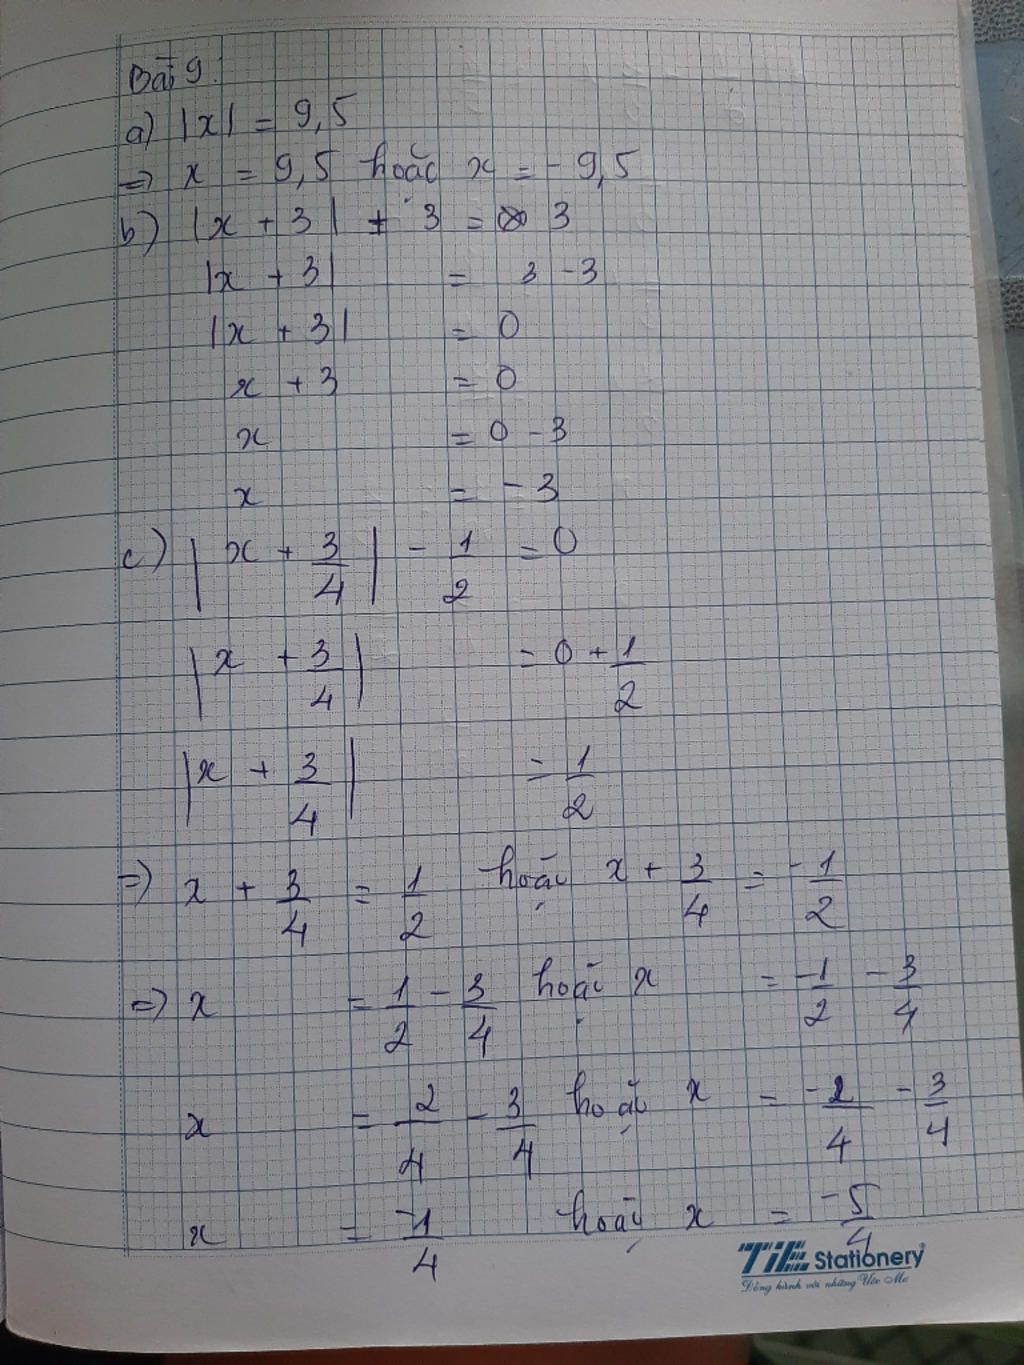 Bài 9:
a) |x| = 9,5
=> x = 9,5 hoặc x = - 9,5
b) |x + 3| + 3 = 3
|x + 3| = 3 - 3
|x + 3| = 0
x + 3 = 0
x = 0 - 3
x = - 3
c) |x + 3/4| - 1/2 = 0
|x + 3/4| = 0 + 1/2
|x + 3/4| = 1/2
=> x + 3/4 = 1/2 hoặc x + 3/4 = -1/2
=> x = 1/2 - 3/4 hoặc x = -1/2 - 3/4
x = 2/4 - 3/4 hoặc x = -2/4 - 3/4
x = -1/4 hoặc x = -5/4
TiE Stationery
Đồng hành với những Ước Mơ